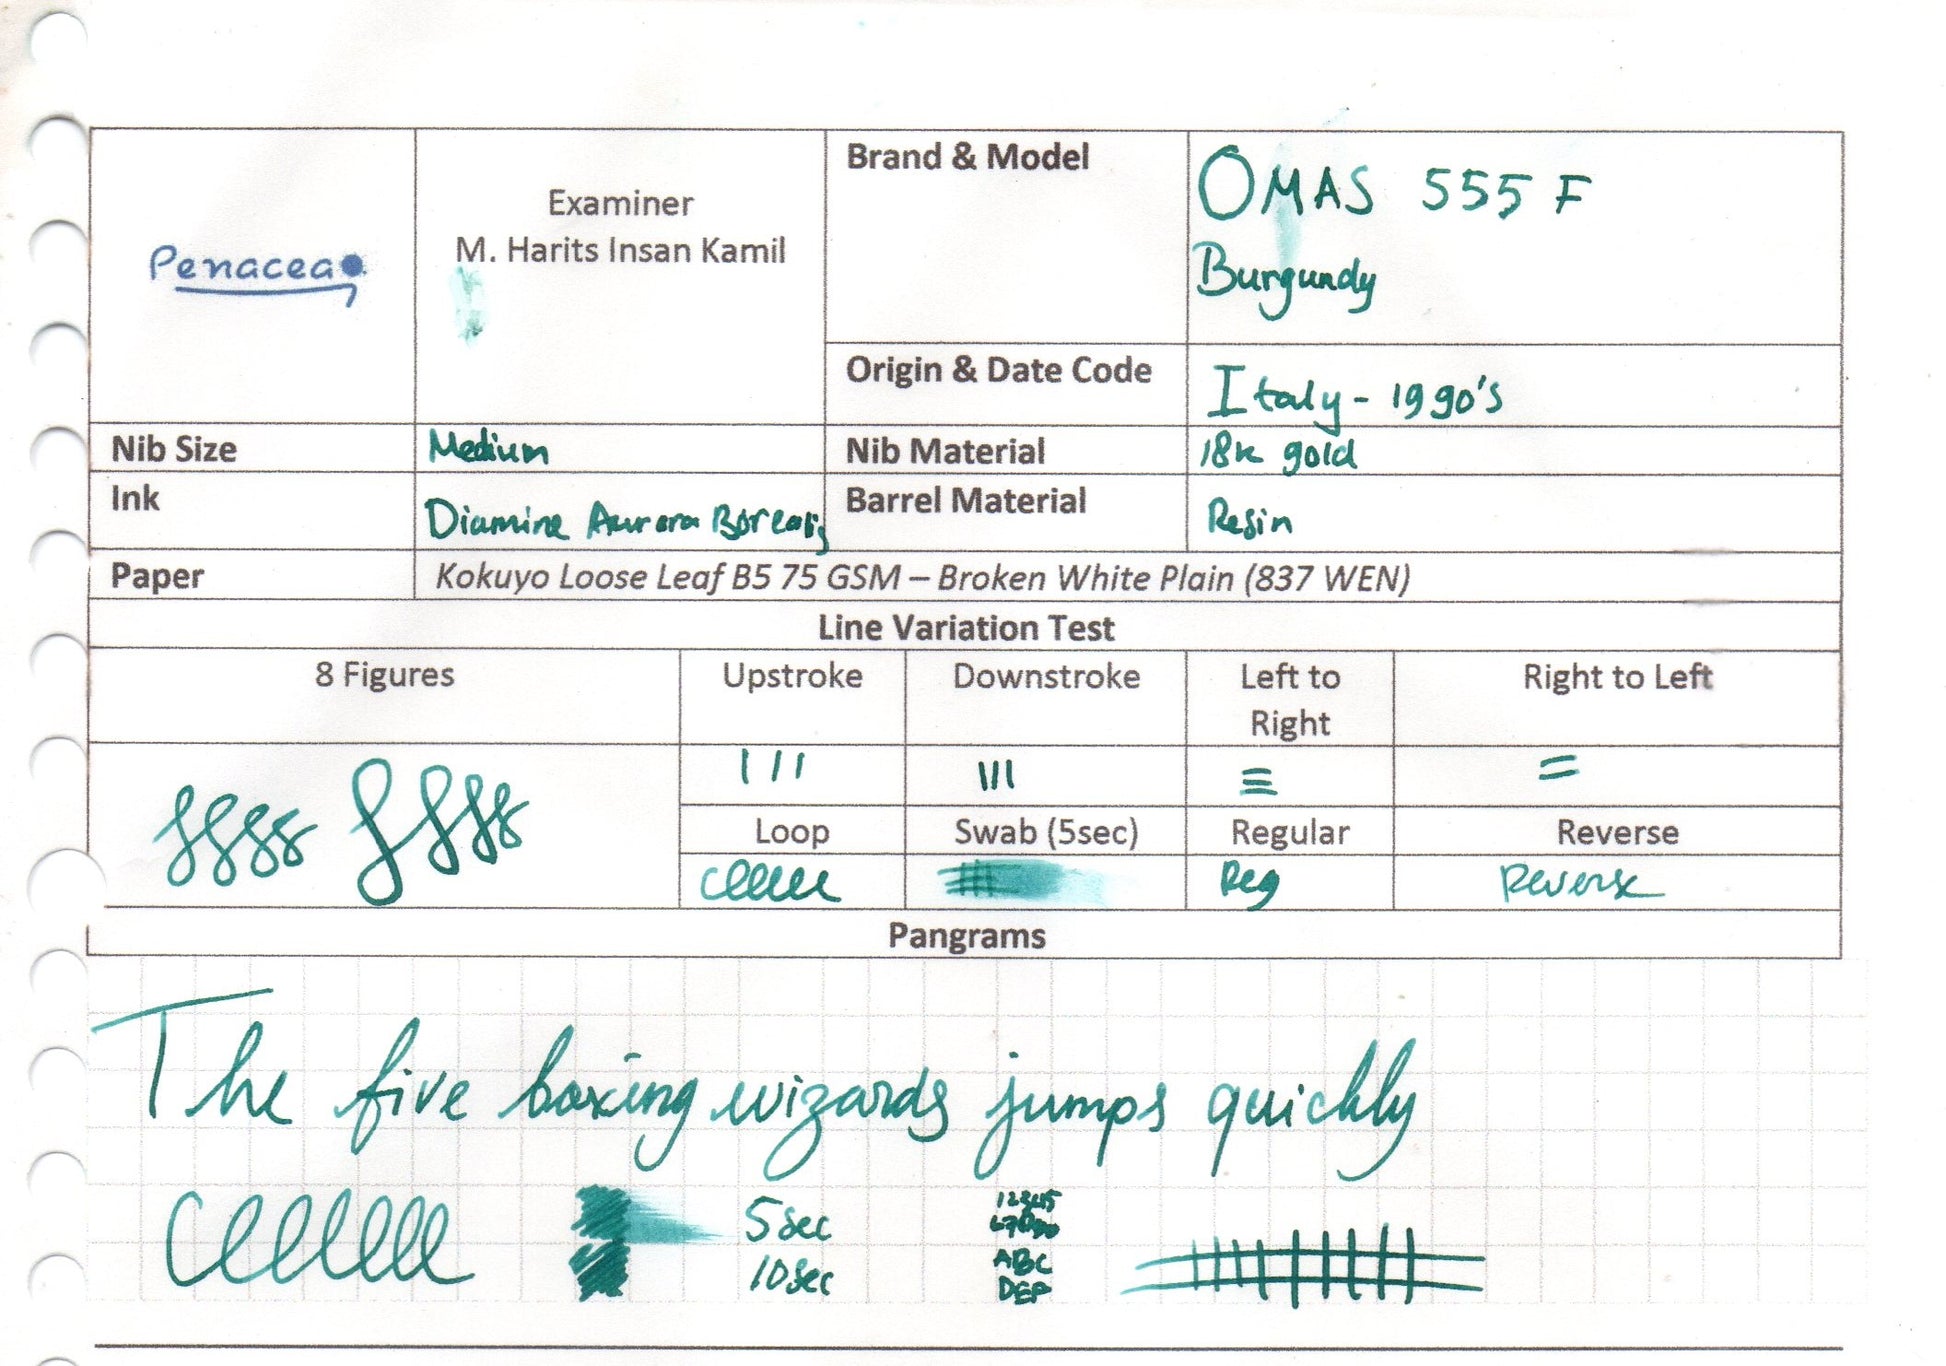 Penacea
Examiner
M. Harits Insan Kamil
Brand & Model
OMAS 555 F
Burgundy
Origin & Date Code
Italy - 1990's
Nib Size
Medium
Nib Material
18k gold
Ink
Diamine Aurora Borealis
Barrel Material
Resin
Paper
Kokuyo Loose Leaf B5 75 GSM – Broken White Plain (837 WEN)
Line Variation Test
8 Figures
Upstroke
Downstroke
Left to
Right
Right to Left
Loop
Swab (5sec)
Regular
Reverse
Reg
Reverse
Pangrams
The five boxing wizards jumps quickly
5 sec
10 sec
12345
ABC
DEF